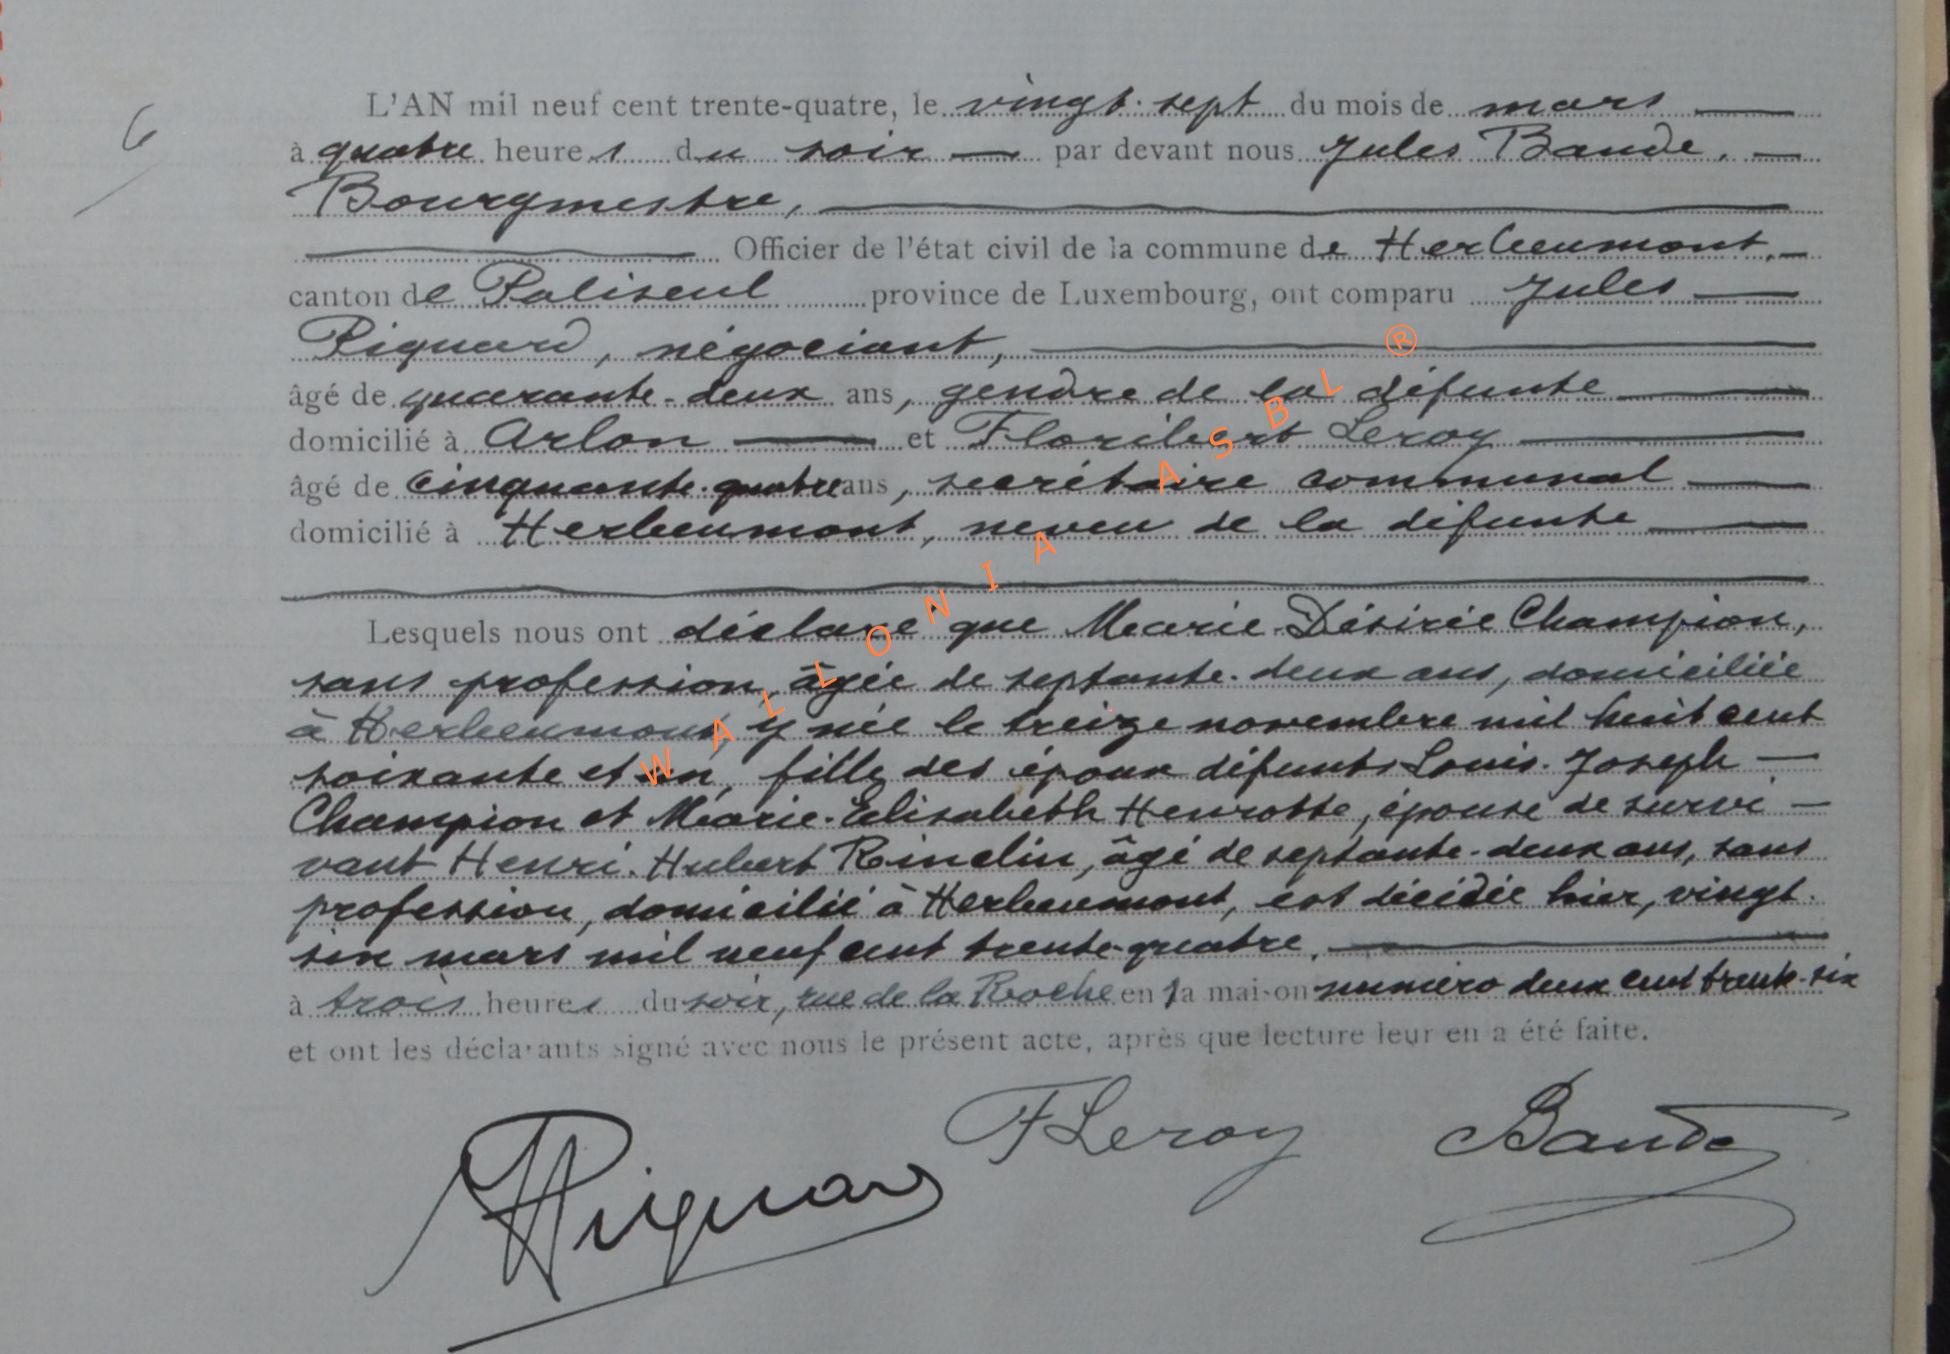 6
L'AN mil neuf cent trente-quatre, le vingt-sept du mois de mars
à quatre heures du soir par devant nous Jules Bande,
Bourgmestre,
Officier de l'état civil de la commune de Herbeumont,
canton de Paliseul province de Luxembourg, ont comparu Jules
Pignard, négociant,
âgé de quarante-deux ans, gendre de la défunte
domicilié à Arlon et Floribert Leroy
âgé de cinquante-quatre ans, secrétaire communal
domicilié à Herbeumont, neveu de la défunte
Lesquels nous ont déclaré que Marie-Désirée Champion,
sans profession, âgée de septante-deux ans, domiciliée
à Herbeumont, y née le treize novembre mil huit cent
soixante et un, fille des époux défunts Louis-Joseph
Champion et Marie-Elisabeth Henrotte, épouse de survi-
vant Henri-Hubert, âgé de septante-deux ans, sans
profession, domicilié à Herbeumont, est décédée hier, vingt-
six mars mil neuf cent trente-quatre,
à trois heures du soir, rue de la Roche en la maison numéro deux cent trente-six
et ont les déclarants signé avec nous le présent acte, après que lecture leur en a été faite.
Pignard FLeroy Bande
WALLONIA ASBL ®